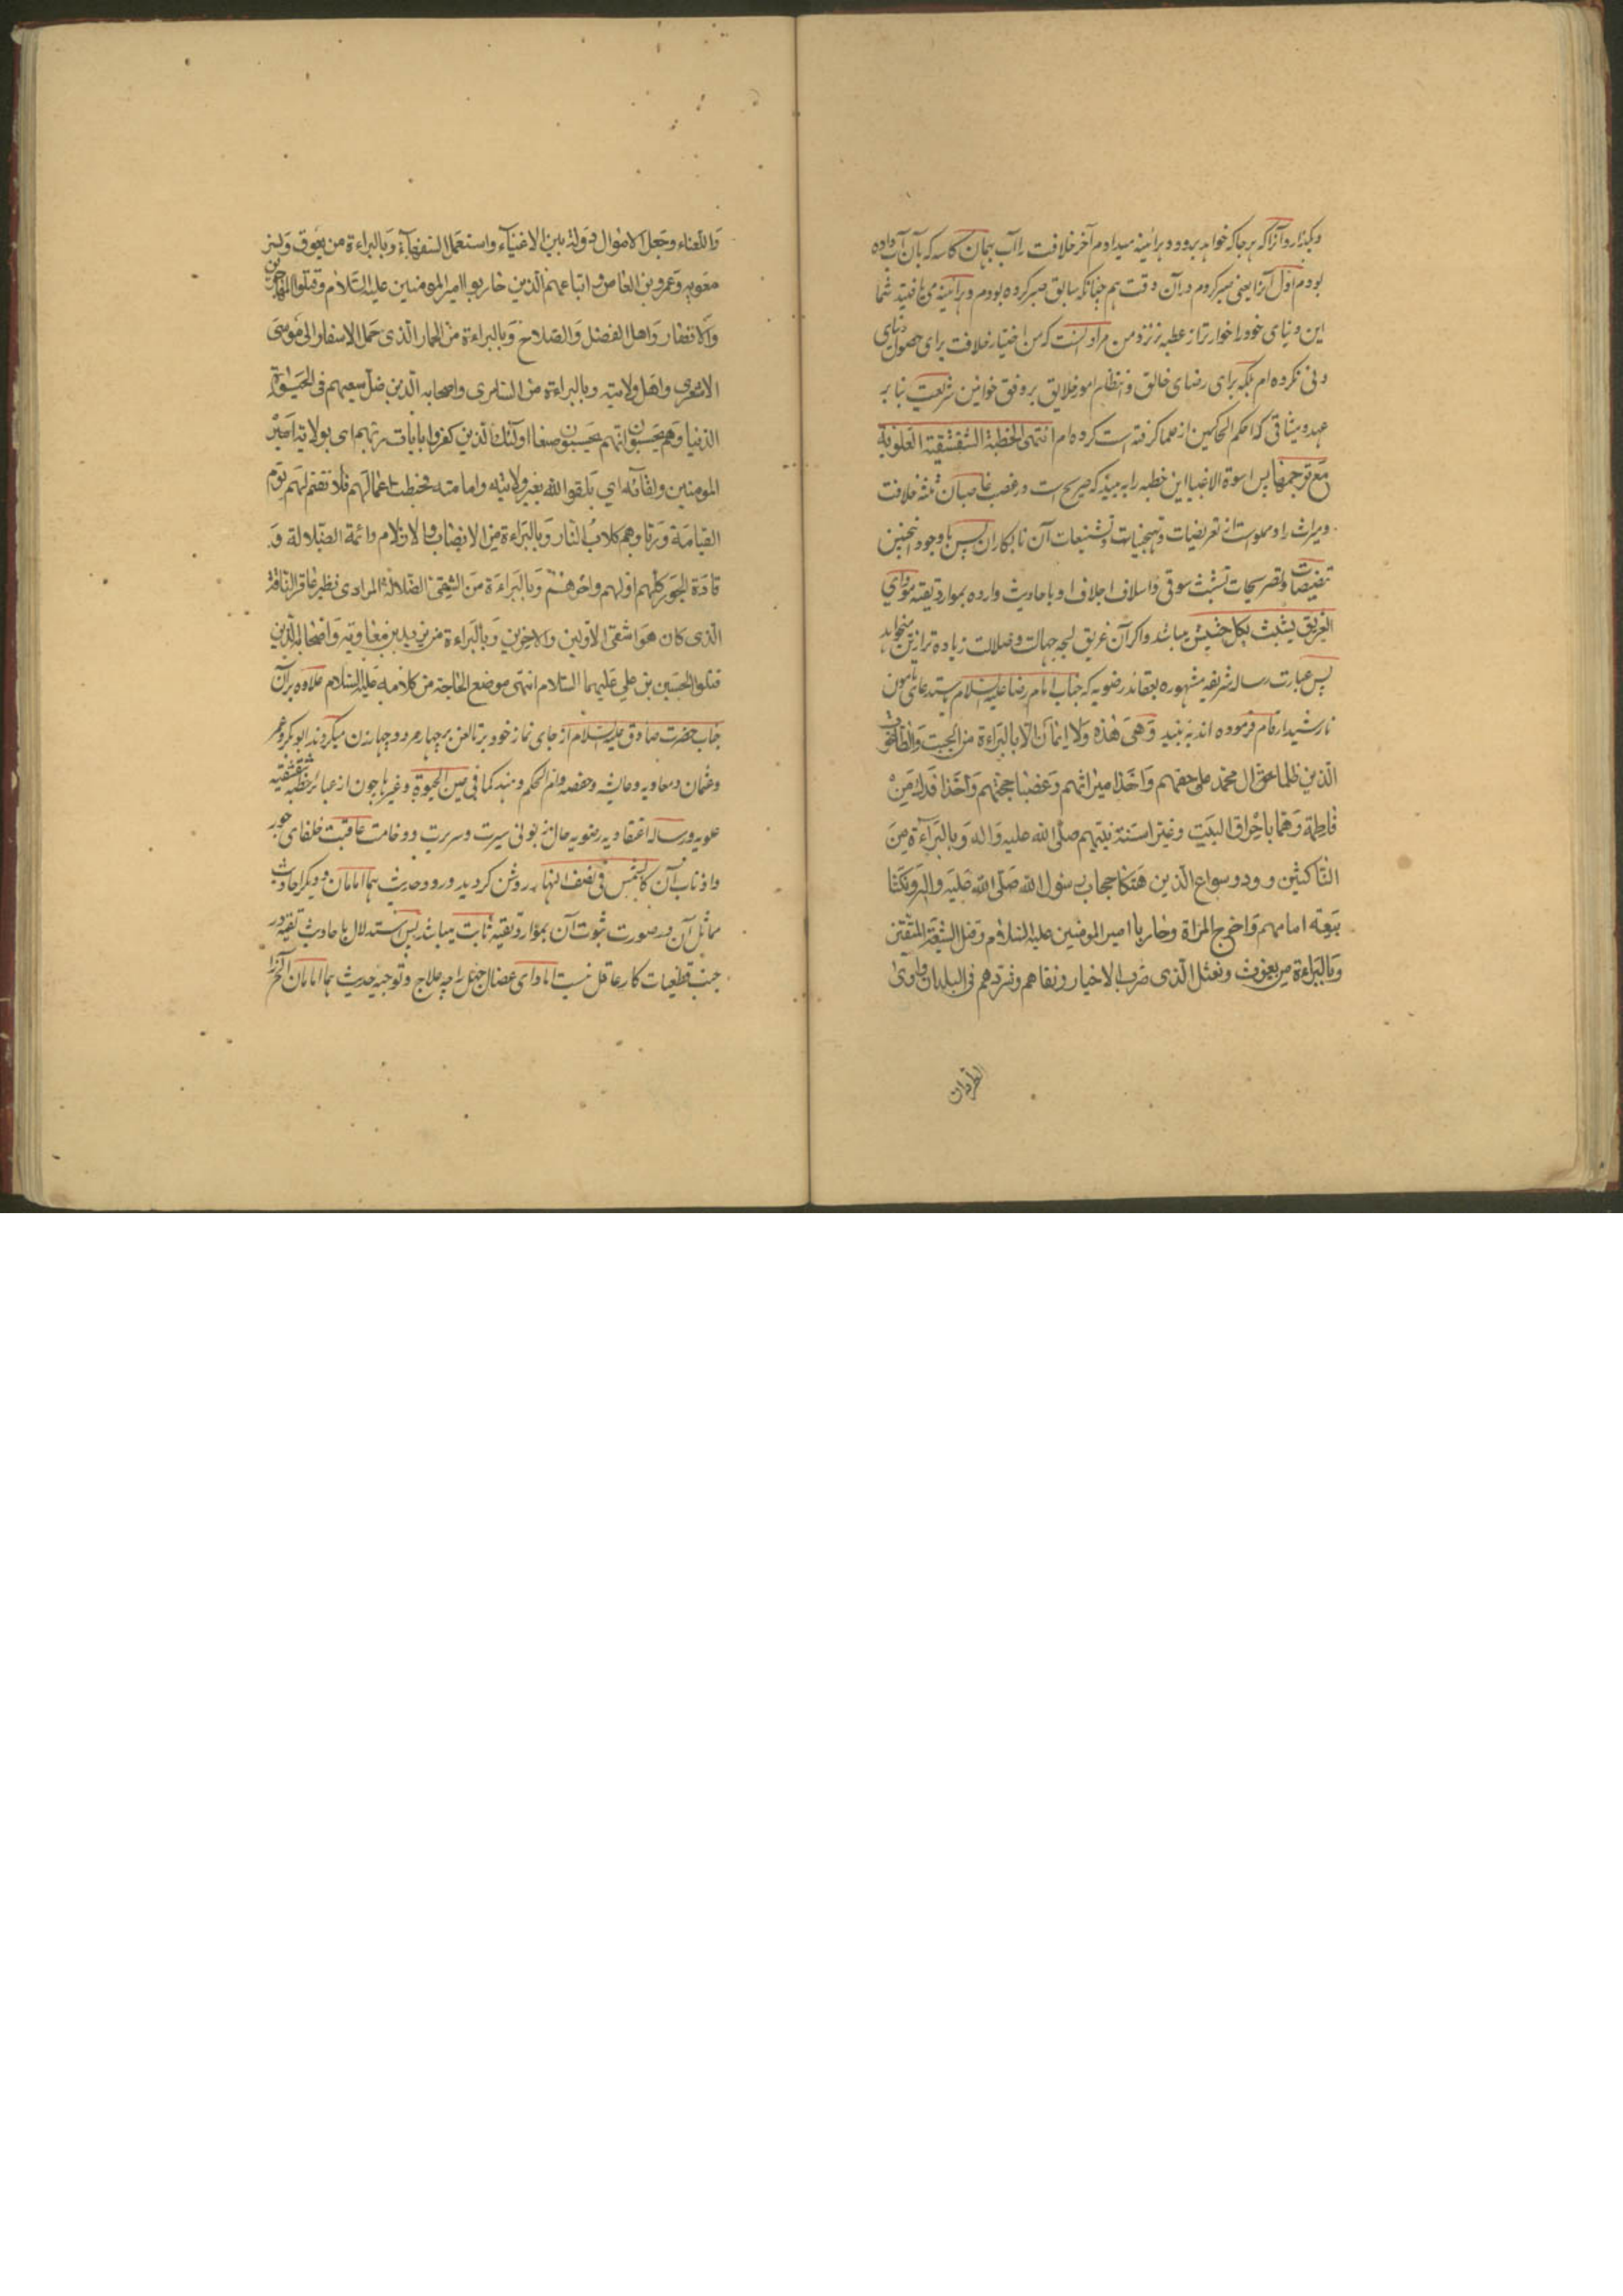 وبگذار و آنرا که هر جا که خواهد برود و هرآئینه میدادم آخر خلافت را آب بهمان کاسه که بآن آب داده
بودم اول آنرا یعنی صبر کردم در آن وقت هم چنانکه سابق صبر کرده بودم و هرآئینه می یافتید شما
این دنیای خود را خوارتر از عطبه بز نزد من مراد آنست که من اختیار خلافت برای حصول دنیای
دنی نکرده ام بلکه برای رضای خالق و انتظام امور خلایق بر وفق قوانین شریعت بنا بر
عهد و میثاقی که احکم الحاکمین از علما گرفته است کرده ام انتهی الخطبة الشقشقیة العلویة
مع ترجمتها پس اسوة الاغبیا این خطبه را به بیند که صریح است در غصب غاصبان ثلثه خلافت
و میراث را و مملو است از تعریضات و تهجینات و تشنیعات آن نابکاران پس باوجود اینچنین
تنصیصات و تصریحات تشبث سوقی و اسلاف اجلاف او باحادیث وارده بموارد تقیه مؤدای
الغریق یتشبث بکل حشیش میباشد و اکر آن غریق لجه جهالت و ضلالت زیاده تر ازین میخواهد
پس عبارت رساله شریفه مشهوره بعقائد رضویه که جناب امام رضا علیه السلام باستدعای مأمون
نارشید ارقام فرموده اند به بیند وهی هذه ولا ایمان الا بالبراءة من الجبت والطاغوت
الذین ظلما حق آل محمد علی حقهم واخذا میراثهم وغصبا حجتهم واخذا فدک من
فاطمة وهما باحراق البیت وغیرا سنة نبیهم صلی الله علیه واله وبالبراءة من
الناکثین و ود و سواع الذین هتکا حجاب رسول الله صلی الله علیه واله ونکثا
بیعة امامهم واخرج المراة وحاربا امیر المومنین علیه السلام وقتل الشیعة المتقین
وبالبراءة من یعوث ونعثل الذی ضرب الاخیار ونفاهم وشردهم فی البلدان واوی
الطردان
واللعناء وجعل الاموال دولة بین الاغنیاء واستعمل السفهاء وبالبراءة من یعوق ونسر
معویه وعمرو بن العاص واتباعهم الذین حاربوا امیر المومنین علیه السلام وقتلوا المهاجرین
والانصار واهل الفضل والصلاح وبالبراءة من الحمار الذی حمل الاسفار ابی موسی
الاشعری واهل ولایته وبالبراءة من السامری واصحابه الذین ضل سعیهم فی الحیوة
الدنیا وهم یحسبون انهم یحسنون صنعا اولئک الذین کفروا بایات ربهم ای بولایة امیر
المومنین ولقائه ای یلقوا الله بغیر ولایته وامامته فحبطت اعمالهم فلا نقیم لهم یوم
القیامة وزنا وهم کلاب النار وبالبراءة من الانصاب والازلام وائمة الضلالة و
قادة الجور کلهم اولهم واخرهم وبالبراءة من الشقی الضلالة المرادی نظیر عاقر الناقة
الذی کان هو اشقی الاولین والاخرین وبالبراءة من یزید بن معاویه واصحابه الذین
قتلوا الحسین بن علی علیهما السلام انتهی موضع الحاجة من کلامه علیه السلام علاوه بر آن
جناب حضرت صادق علیه السلام از جای نماز خود بر نالعن بر چهار مرد و چهار زن میکردند ابو بکر و عمر
وعثمان و معاویه و عایشه و حفصه و ام الحکم و هند کما فی عین الحیوة وغیرها چون از عبائر خطبه شقشقیه
علویه و رساله اعتقادیه رضویه حال زبونی سیرت و سریرت و وخامت عاقبت خلفای جور
واذناب آن کالشمس فی نصف النهار روشن گردید ورود حدیث هما امامان و دیگر احادیث
مماثل آن در صورت ثبوت آن بموارد تقیه ثابت میباشد پس استدلال باحادیث تقیه در
جنب قطعیات کار عاقل نیست اما دای عضال جهل را چه علاج و توجیه حدیث هما امامان الخ را